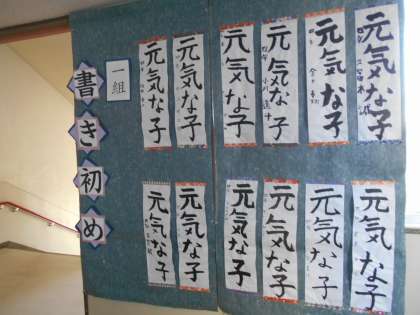 書き初め
一組
元気な子
元気な子
元気な子
元気な子
元気な子
元気な子
元気な子
元気な子
元気な子
元気な子
元気な子
元気な子